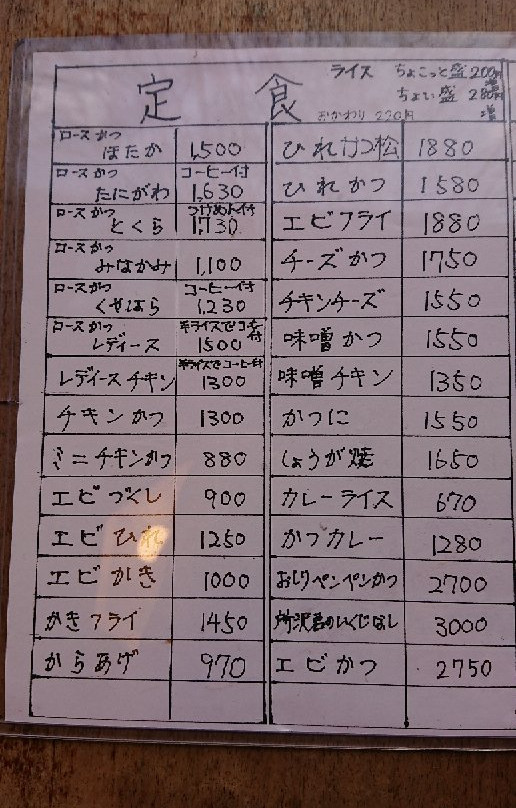 定食
ライス ちょこっと盛 200円増
ちょい盛 280円増
おかわり 220円
ロースかつ
ほたか 1,500
ロースかつ コーヒー付
たにがわ 1,630
ロースかつ つけめん付
とくら 1,730
ロースかつ
みなかみ 1,100
ロースかつ コーヒー付
くやはら 1,230
ロースかつ 半ライスでコーヒー付
レディース 1500
半ライスでコーヒー付
レディースチキン 1300
チキンかつ 1300
ミニチキンかつ 880
エビづくし 900
エビひれ 1250
エビかき 1000
かきフライ 1450
からあげ 970
ひれかつ松 1880
ひれかつ 1580
エビフライ 1880
チーズかつ 1750
チキンチーズ 1550
味噌かつ 1550
味噌チキン 1350
かつに 1550
しょうが焼 1650
カレーライス 670
かつカレー 1280
おしりペンペンかつ 2700
所沢君のいくじなし 3000
エビかつ 2750